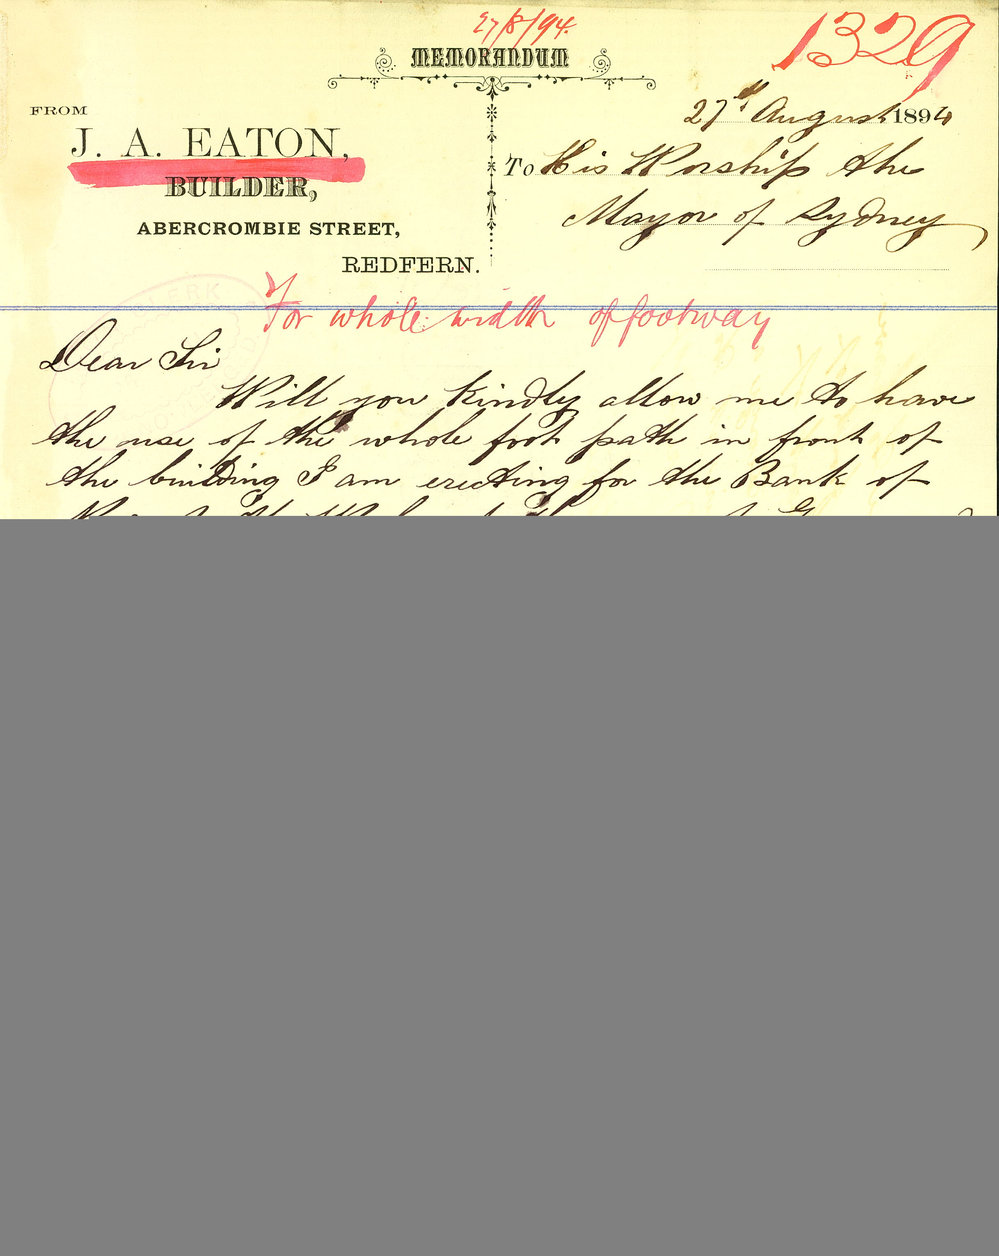 27/8/94.
1329
MEMORANDUM
27th August 1894
FROM
J. A. EATON,
BUILDER,
ABERCROMBIE STREET,
REDFERN.
To His Worship the
Mayor of Sydney
CLERK
For whole width of footway
Dear Sir
Will you kindly allow me to have
the use of the whole foot path in front of
the building I am erecting for the Bank of